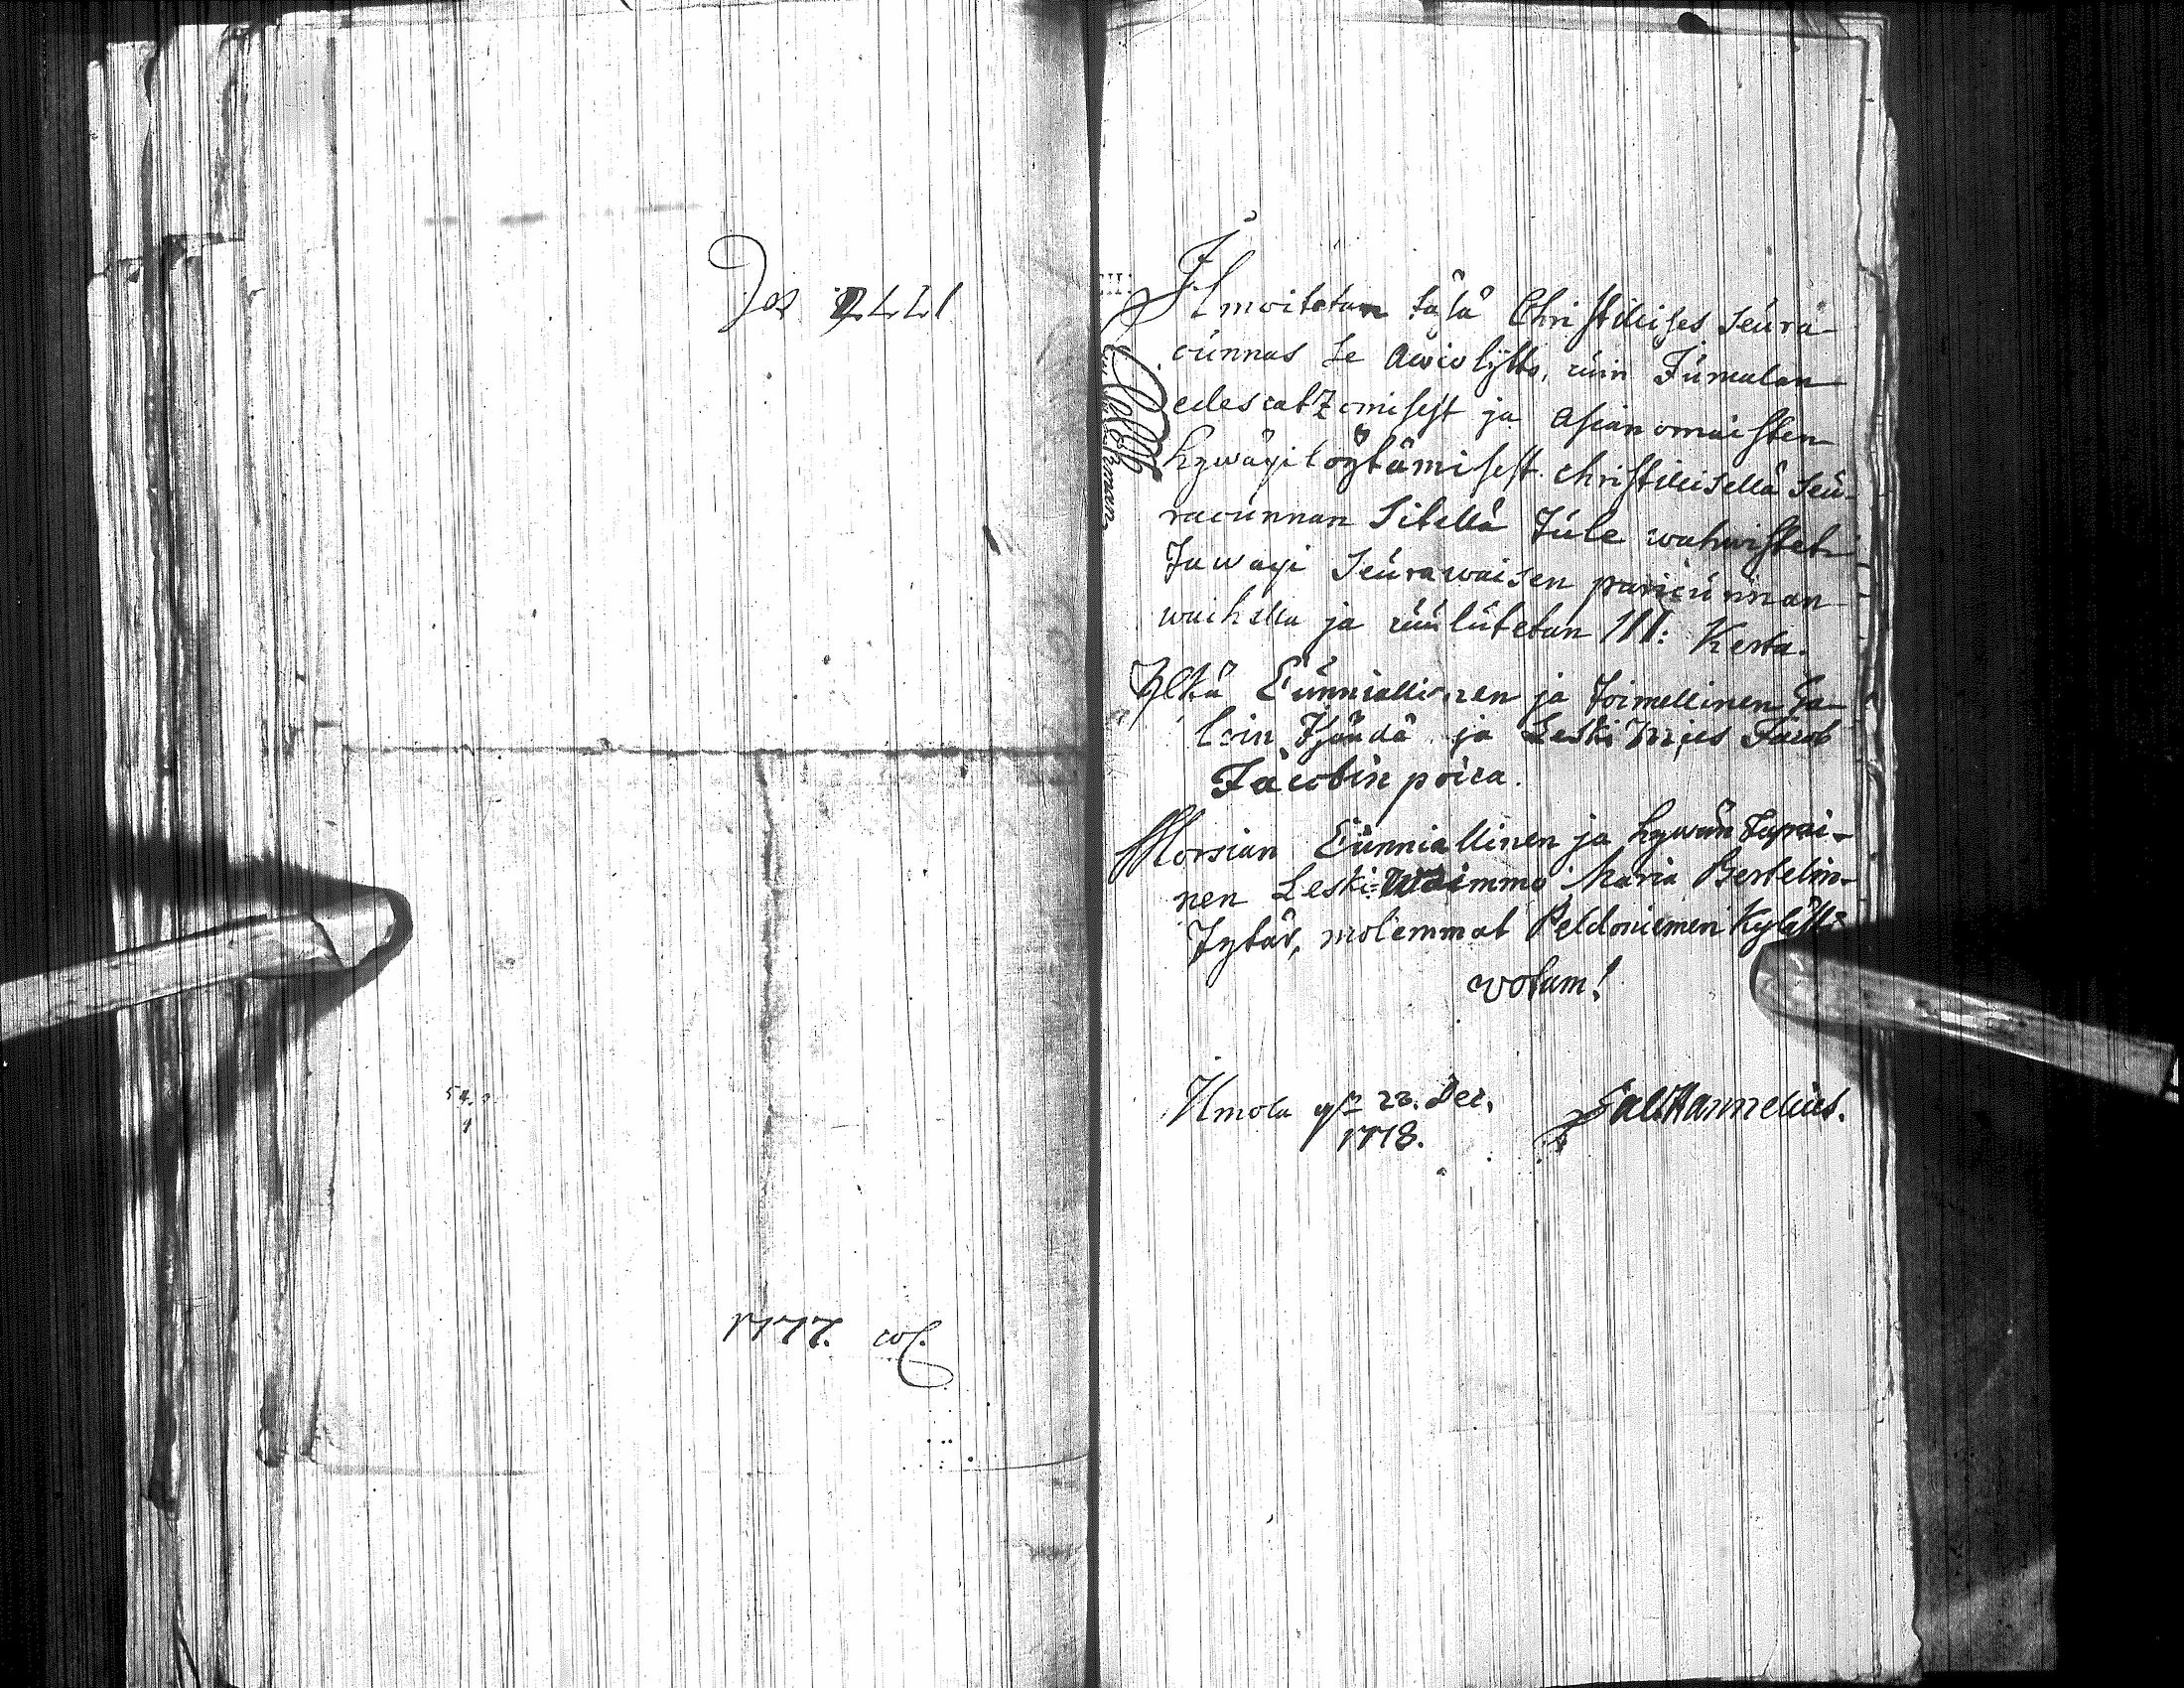 1777. 
Ilmoitetan täsä Christilises seura-
cunnas se Awio lijtto, cuin Jumalan
edescatzomisest ja asianomaisten
hywäxilöytämisest christilisellä seu-
racunnan sitellä tule wahwistetu
Tawaxi seurawaisen pariscunnan
waihella ja cuulutetan III: Kerta.
Yltä Cunniallinen ja toimellinen Ta-
loin Isändä ja Leski Mies Jacob
Jacobin poica.
Morsian Cunniallinen ja hywän tapai-
nen Leski-Waimmo Maria Bertelin-
Tytär, molemmat Peldoniemen Kyläst
votum!
Ilmola 22. Dec.
1778.
Gab. Hannelius.
1777.